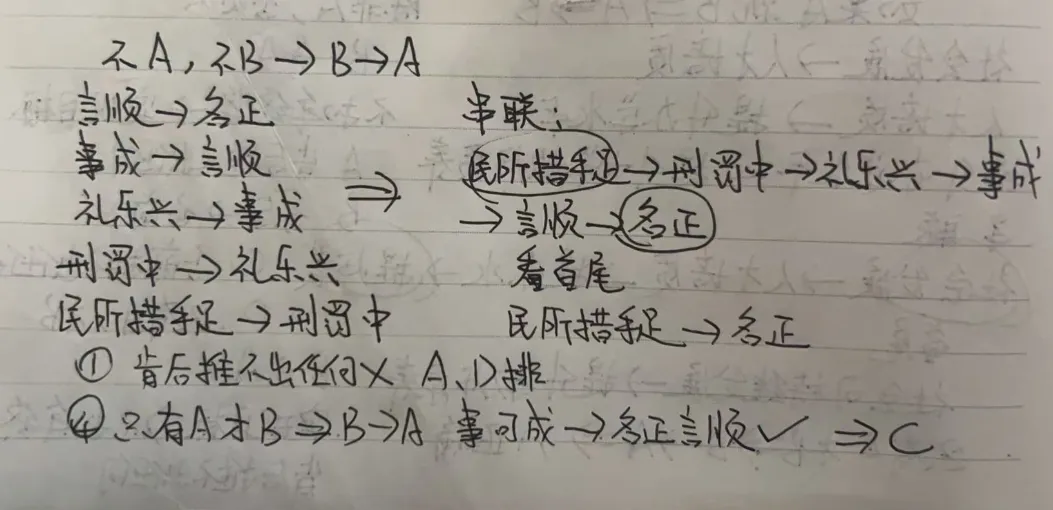 不A，不B→B→A
言顺→名正
事成→言顺
礼乐兴→事成
刑罚中→礼乐兴
民所措手足→刑罚中
⇒
串联：
民所措手足→刑罚中→礼乐兴→事成
→言顺→名正
看首尾
民所措手足→名正
① 肯后推不出任何× A、D排
④ 只有A才B⇒B→A 事可成→名正言顺✓ ⇒C